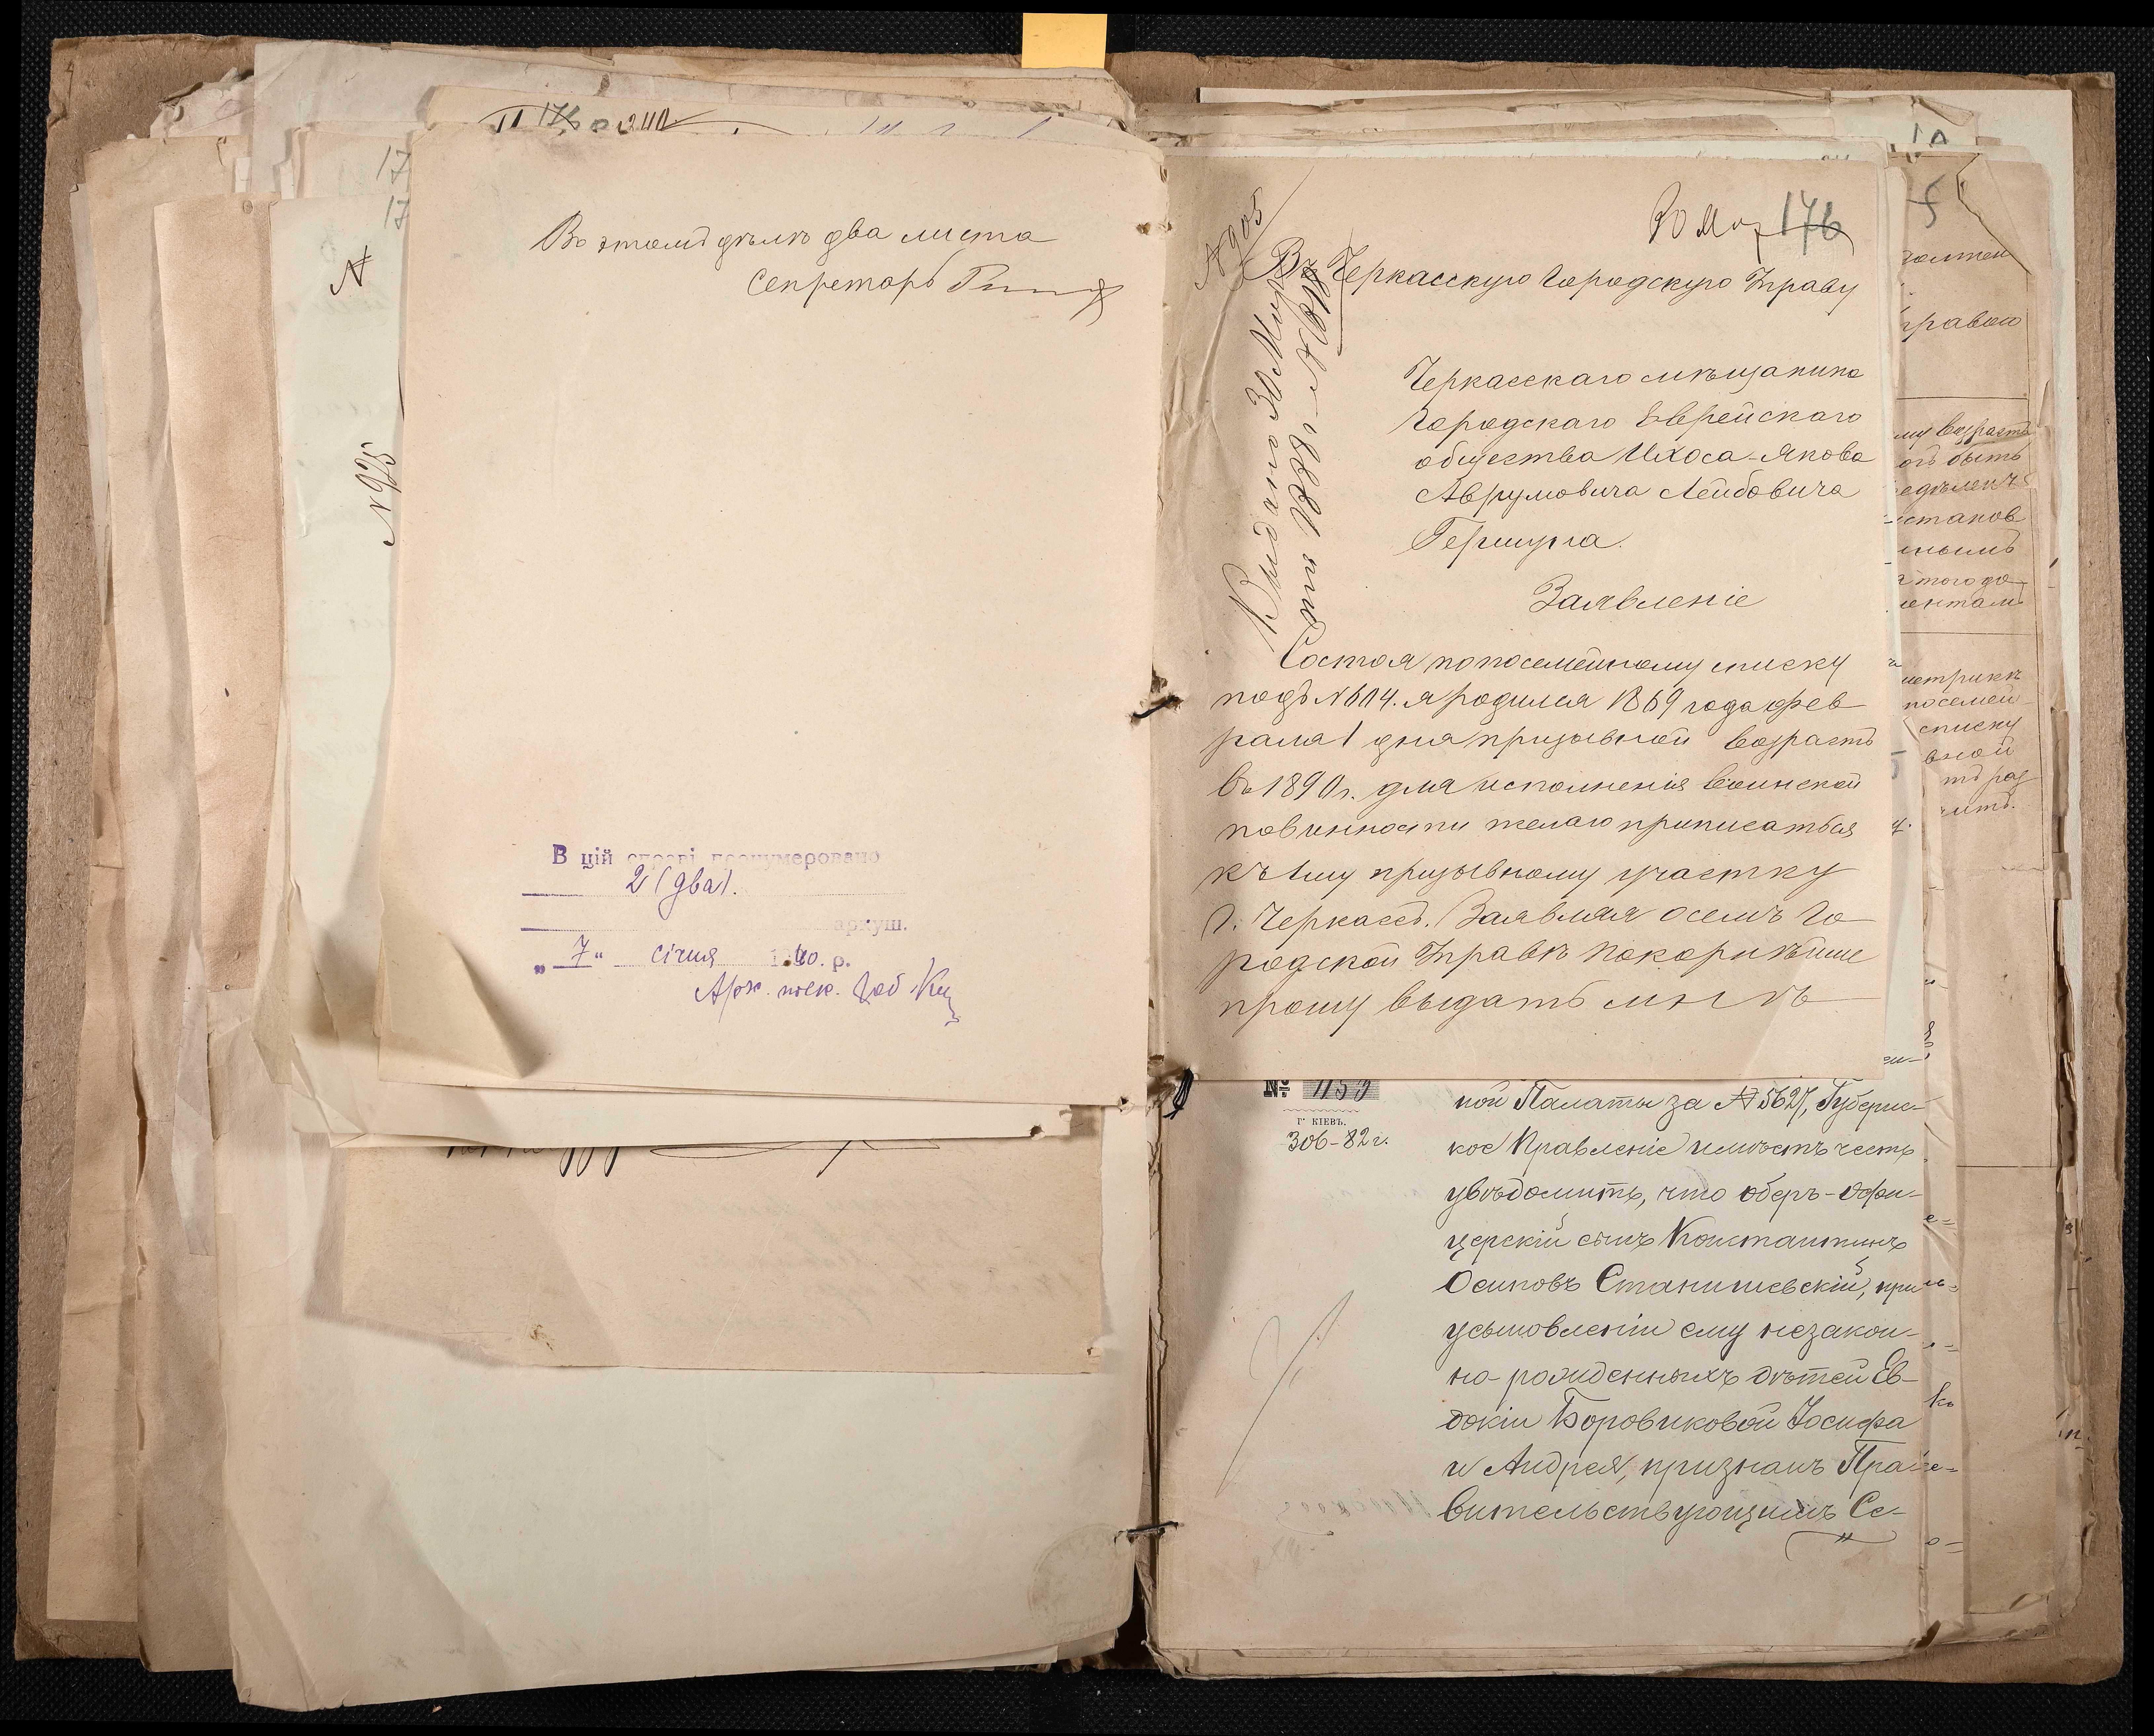 Въ этомъ дѣлѣ два листа
Секретарь
В цій справі пронумеровано
2 (два).
аркуш.
„ 7 “ січня 1940. р.
N 925
N 905
30 Мар 176
Въ Черкасскую Городскую Управу
Черкасскаго мѣщанина
городскаго Еврейскаго
общества Ихоса-Якова
Аврумовича Лейбовича
Гершуна.
Заявленіе
Выдано 30 Мар
та 1889 г. N
Состоя по посемейному списку
подъ N 614. я родился 1869 года фев
раля 1 дня призывной возрастъ
въ 1890 г. для исполненія воинской
повинности желаю приписаться
къ 1му призывному участку
г. Черкассъ. Заявляя о семъ Го
родской Управѣ покорнѣйше
прошу выдать мнѣ
№ 1159
Г. КІЕВЪ.
306-82 г.
ной Палаты за № 5627, Губернс-
кое Правленіе имѣетъ честь
увѣдомить, что оберъ-офи-
церскій сынъ Константинъ
Осиповъ Станишевскій, при
усыновленіи ему незакон-
но-рожденныхъ дѣтей Ев-
докіи Боровиковой Іосифа
и Андрея, признанъ Пра-
вительствующимъ Се-
правою
му возрастъ
огъ быть
истанов
нымъ
этого до
ентамъ
метрикѣ
посемей
списку
вной